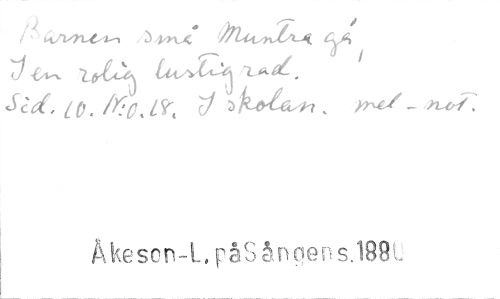 Barnen små Muntra gå,
I en rolig lustig rad.
Sid. 10. N:o. 18. I skolan. mel-not.
Åkeson-L. på Sångens. 1880